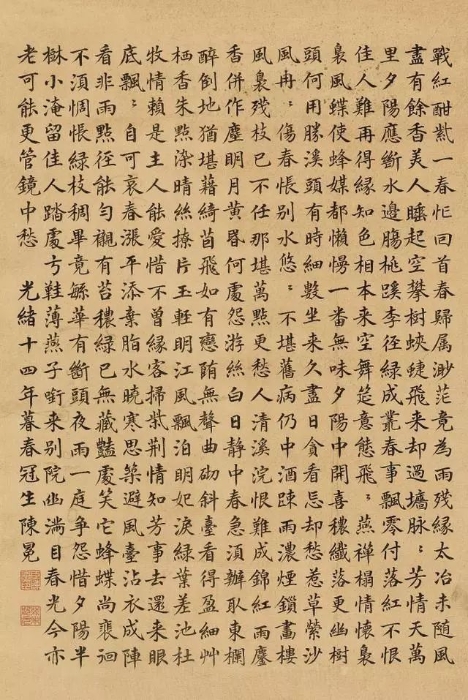 戰紅酣紫一春忙回首春歸属渺茫竟為雨殘緣太冶未随風
盡有餘香美人睡起空攀樹蛺蝶飛來却過墻脉:芳情天萬
里夕陽應斷水邊腸桃蹊李徑綠成叢春事飄零付落紅不恨
佳人難再得緣知色相本来空舞筵意態飛:燕禅榻情懷裊
裊風蝶使蜂媒都懶慢一番無味夕陽中開喜穠纖落更幽樹
頭何用勝溪頭有時細數坐来久盡日貪看忘却愁惹草縈沙
風冉:傷春悵別水悠:不堪舊病仍中酒踈雨濃煙鎖畫樓
風裊殘枝已不任那堪萬點更愁人清溪浣恨難成錦紅雨塵
香併作塵明月黄昏何處怨游絲白日静中春急須辦取東欄
醉倒地猶堪藉綺茵飛如有戀堕無聲曲砌斜臺看得盈細艸
栖香朱點染晴絲撩片玉輕明江風飄泊明妃淚綠葉差池杜
牧情賴是主人能愛惜不曾緣客掃柴荆情知芳事去還来眼
底飄:自可哀春漲平添棄脂水曉寒思築避風臺沾衣成陣
看非雨點徑能勻觀有苔穠綠已無藏艷處笑它蜂蝶尚裵徊
不須惆悵綠枝稠畢竟緐華有斷頭夜雨一庭争怨惜夕陽半
樹小淹留佳人踏處弓鞋薄燕子銜来別院幽滿目春光今亦
老可能更管鏡中愁 光緒十四年暮春冠生陳冕